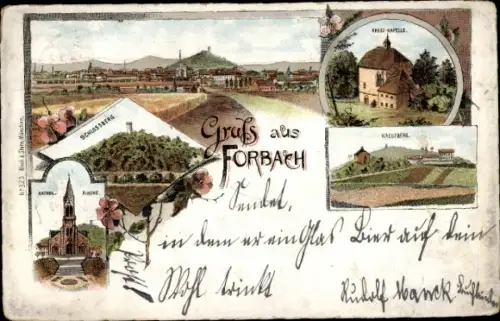 KREUZ-KAPELLE.
SCHLOSSBERG
Gruß aus
FORBACH
KREUZBERG.
KATHOL. KIRCHE.
Sendet,
in dem er ein Glas Bier auf Dein
Wohl trinkt
Rudolf